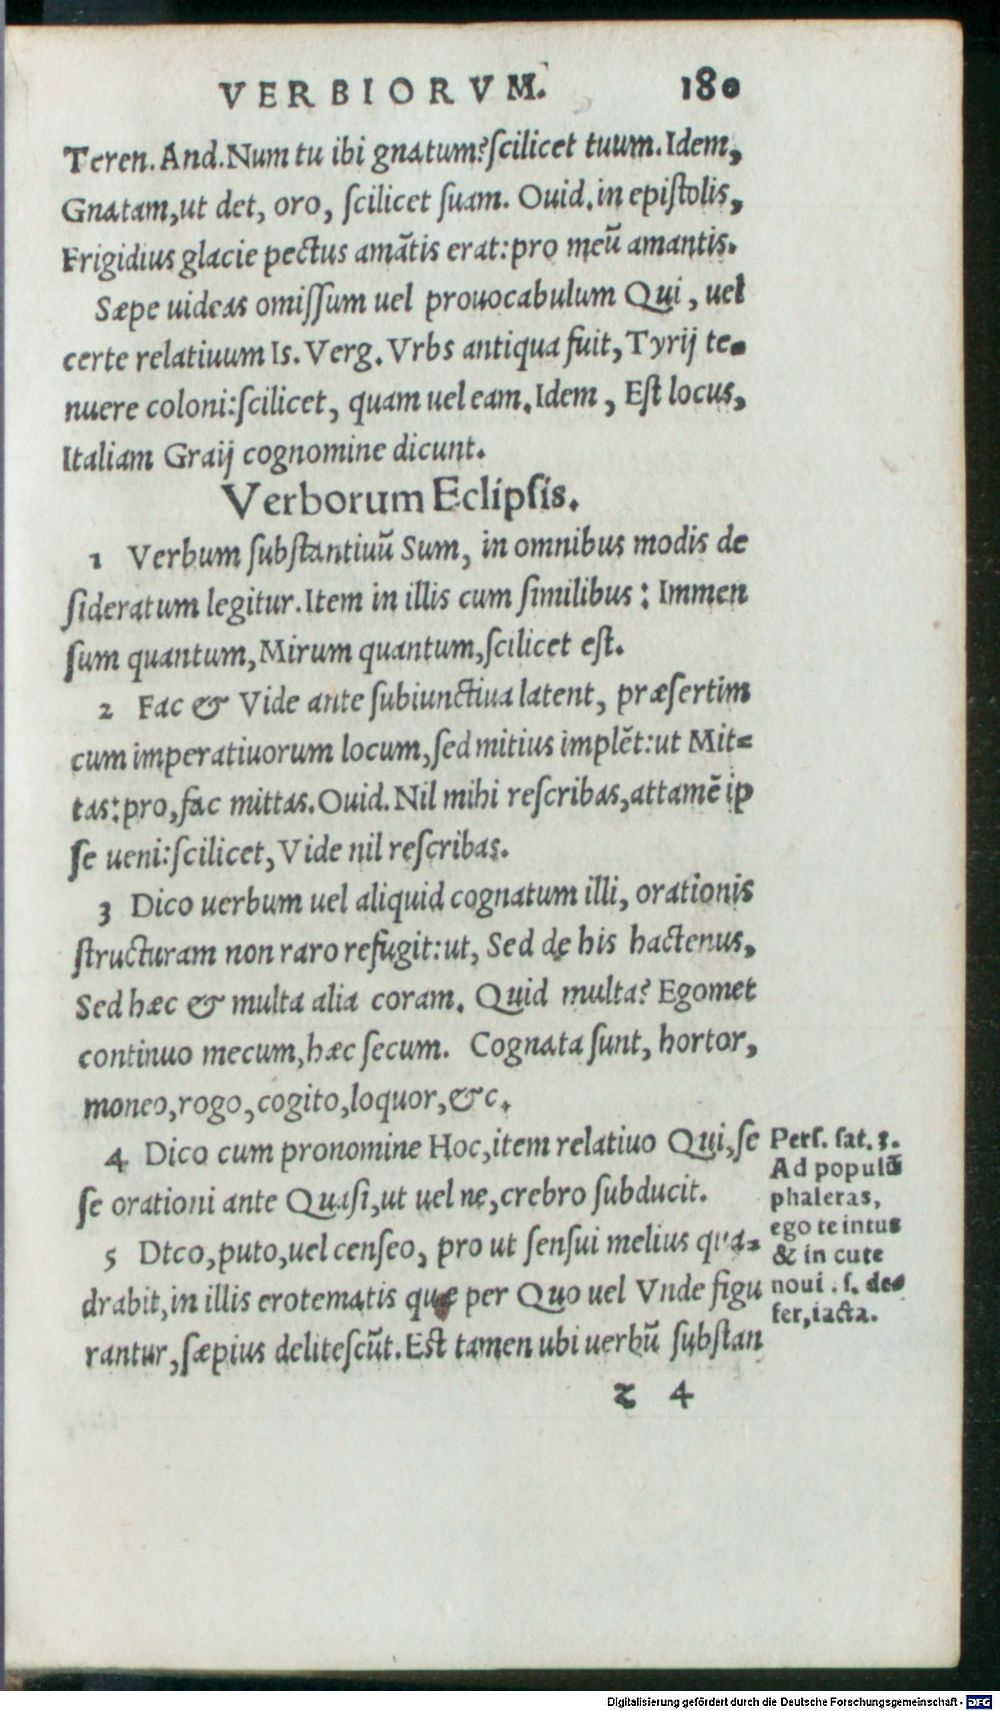 VERBIORVM. 180
Teren. And. Num tu ibi gnatum? ſcilicet tuum. Idem,
Gnatam, ut det, oro, ſcilicet ſuam. Ouid. in epiſtolis,
Frigidius glacie pectus amãtis erat: pro meũ amantis.
Sæpe uideas omiſſum uel prouocabulum Qui, uel
certe relatiuum Is. Verg. Vrbs antiqua fuit, Tyrij te-
nuere coloni: ſcilicet, quam uel eam. Idem, Eſt locus,
Italiam Graij cognomine dicunt.
Verborum Eclipſis.
1 Verbum ſubſtantiuũ Sum, in omnibus modis de
ſideratum legitur. Item in illis cum ſimilibus: Immen
ſum quantum, Mirum quantum, ſcilicet eſt.
2 Fac & Vide ante ſubiunctiua latent, præſertim
cum imperatiuorum locum, ſed mitius implẽt: ut Mit=
tas: pro, fac mittas. Ouid. Nil mihi reſcribas, attamẽ ip
ſe ueni: ſcilicet, Vide nil reſcribas.
3 Dico uerbum uel aliquid cognatum illi, orationis
ſtructuram non raro refugit: ut, Sed de his hactenus,
Sed hæc & multa alia coram. Quid multa? Egomet
continuo mecum, hæc ſecum. Cognata ſunt, hortor,
moneo, rogo, cogito, loquor, &c.
4 Dico cum pronomine Hoc, item relatiuo Qui, ſe
ſe orationi ante Quaſi, ut uel ne, crebro ſubducit.
5 Dtco, puto, uel cenſeo, pro ut ſenſui melius qua-
drabit, in illis erotematis quæ per Quo uel Vnde figu
rantur, ſæpius deliteſcũt. Eſt tamen ubi uerbũ ſubſtan
z 4
Perſ. ſat. 3.
Ad populũ
phaleras,
ego te intus
& in cute
noui. ſ. de-
fer, iacta.
Digitalisierung gefördert durch die Deutsche Forschungsgemeinschaft - DFG